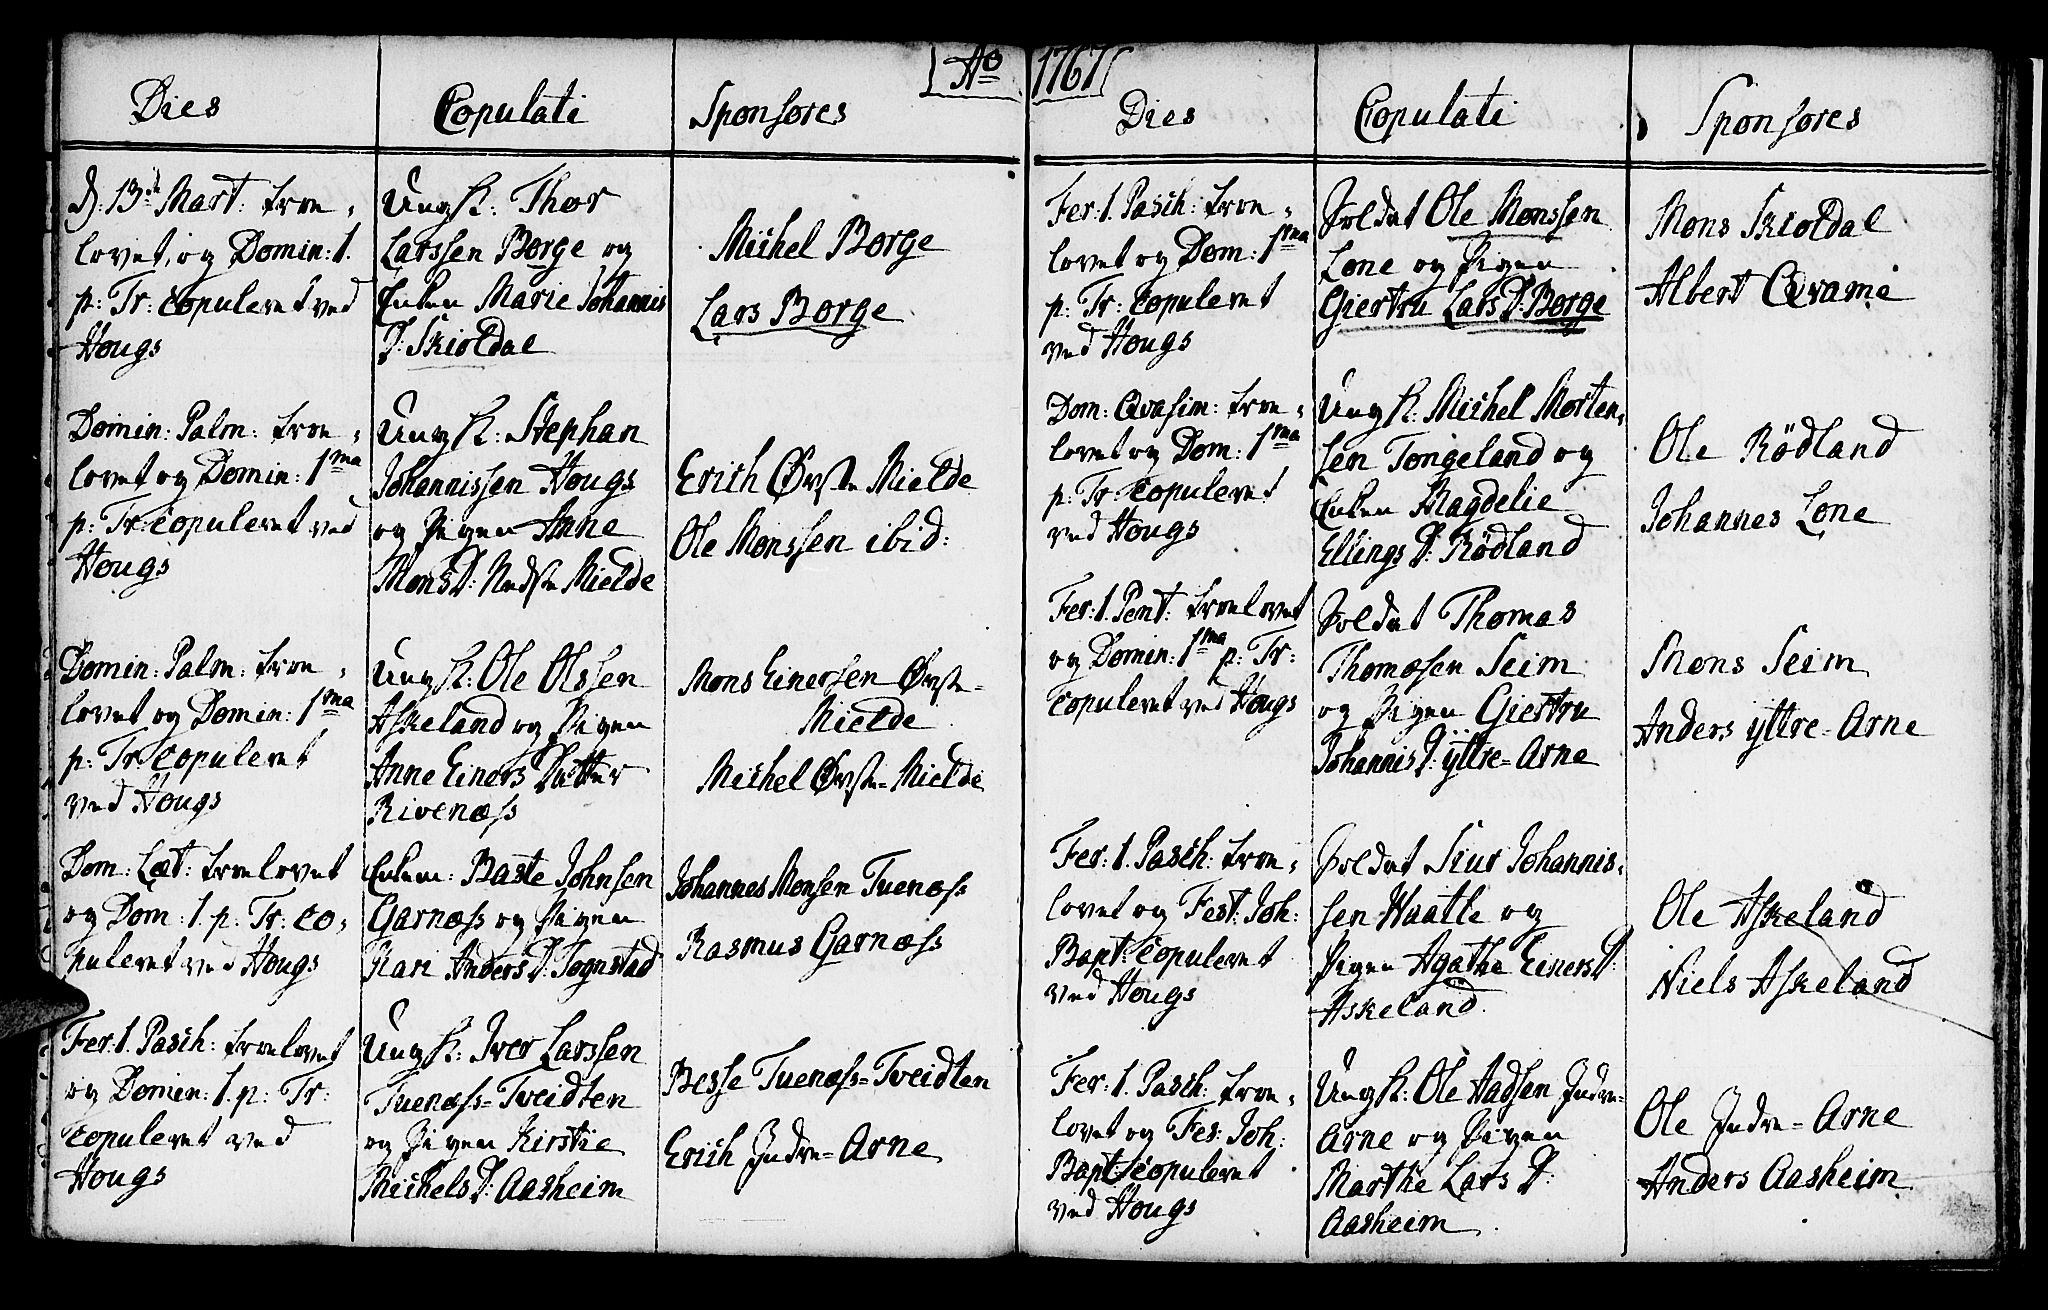 Ao 1767
Dies
Copulati
Sponsores
d: 13de Mart: troe-
lovet, og Domin: 1.
p: Tr: copuleret ved
Hougs
Ungk: Thor
Larssen Borge og
Enken Marie Johannis
D: Skioldal
Michel Borge
Lars Borge
Domin: Palm: troe-
lovet og Domin: 1ma
p: Tr: copuleret ved
Hougs
Ungk: Stephan
Johannissen Hougs
og Pigen Anne
Mons D: Nedste Mielde
Erich Øvste Mielde
Ole Monssen ibid:
Domin: Palm: troe-
lovet og Domin: 1ma
p: Tr: copuleret
ved Hougs
Ungk: Ole Olssen
Askeland og Pigen
Anne Einers Datter
Rivenæss
Mons Einerssen Øvste-
Mielde
Michel Øvste-Mielde
Dom: Læt: troelovet
og Dom: 1. p: Tr: co-
puleret ved Hougs
Enkem: Baste Johnsen
Garnæss og Pigen
Kari Anders D: Tognstad
Johannes Monsen Tuenæss
Rasmus Garnæss
Fer: 1. Pasch: troelovet
og Domin: 1. p: Tr:
copuleret ved
Hougs
Ungk: Iver Larssen
Tuenæss-Tveidten
og Pigen Kirstie
Michels D: Aasheim
Besse Tuenæss-Tveidten
Erich Indre-Arne
Dies
Copulati
Sponsores
Fer: 1. Pasch: troe-
lovet og Dom: 1ma
p: Tr: copuleret
ved Hougs
Soldat Ole Monssen
Lone og Pigen
Giertru Lars D: Borge
Mons Skioldal
Albert Qvame
Dom: Qvasim: troe-
lovet og Dom: 1ma
p: Tr: copuleret
ved Hougs
Ungk: Michel Morten-
sen Tongeland og
Enken Magdelie
Ellings D: Rödland
Ole Rödland
Johannes Lone
Fer: 1. Pent: troelovet
og Domin: 1ma p: Tr:
copuleret ved Hougs
Soldat Thomas
Thomæsen Seim
og Pigen Giertru
Johannis D: yttre-Arne
Mons Seim
Anders yttre-Arne
Fer: 1. Pasch: troe-
lovet og Fest: Joh:
Bapt: copuleret
ved Hougs
Soldat Siur Johannis-
sen Haatle og
Pigen Agathe Einers D:
Askeland
Ole Askeland
Niels Askeland
Fer: 1. Pasch: troe-
lovet og Fes: Joh:
Bapt: copuleret
ved Hougs
Ungk: Ole Aadsen Indre-
Arne og Pigen
Marthe Lars D:
Aasheim
Ole Indre-Arne
Anders Aasheim